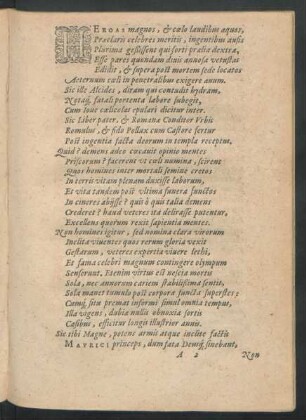 HEROAS magnos, & cælo laudibus aquos,
Præclaris celebres meritis, ingentibus ausis
Plurima gessissent qui forti prælia dextra,
Esse pares quondam divis annosa vetustas
Edidit, & supera post mortem sede locatos
Aeternum cæli in penetralibus exigere ævum.
Sic ille Alcides, diram qui contudit hydram,
Notaq́, fatali portenta labore subegit,
Cum Jove cælicolas epulari dicitur inter.
Sic Liber pater, & Romanæ Conditor Vrbis
Romulus, & fido Pollax cum Castore fertur
Post ingentia facta deorum in templa receptus.
Quid? demens adeo cæcavit opinio mentes
Priscorum? facerent vt cœli numina, scirent
Quos homines inter mortali semine cretos
In terris vitam plenam duxisse laborum,
Et vita tandem post vltima funera functos
In cineres abijsse? quis ô quis talia demens
Crederet? haud veteres ita delirasse putentur,
Excellens quorum rexit sapientia mentes.
Non homines igitur, sed nomina clara virorum
Inclita viventes quos rerum gloria vexit
Gestarum, veteres expertia vivere lethi,
Et fama celebri magnum contingere olympum
Senserunt, Etenim virtus est nescia mortis
Sola, nec annorum cariem stabilisima sentit,
Sola manet tumulo post corpora functa superstes;
Cumq́, sita premat informi simul omnia tempus,
Illa vigens, dubiæ nullis obnoxia sortis
Casibus, efficitur longis illustrior annis.
Sic tibi Magne, potens armis atque inclite factis
MAVRICI princeps, dum fata Demq́ sinebant,
A 2
Non